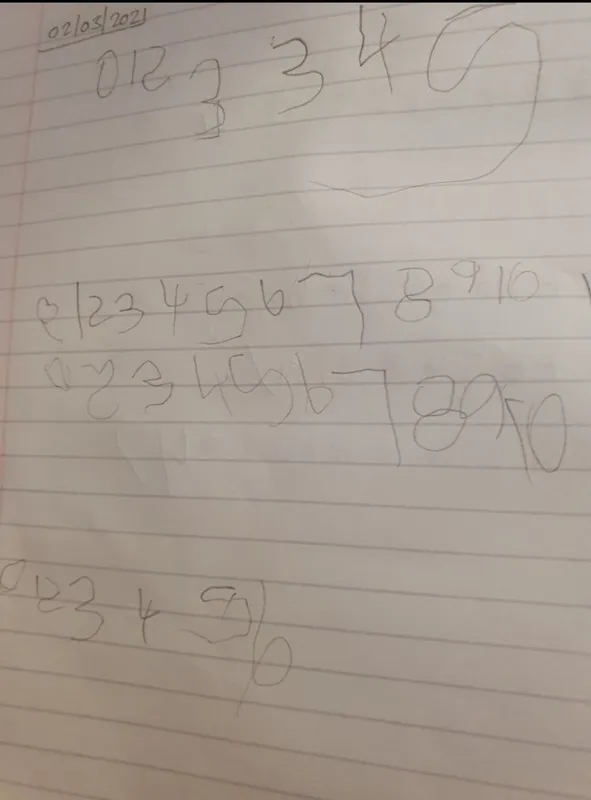 02/03/2021
012 3 3 4 5
0123 4 5 6 7 8 9 10
0 2 3 4 5 6 7 8 9 10
0 1 2 3 4 5 6